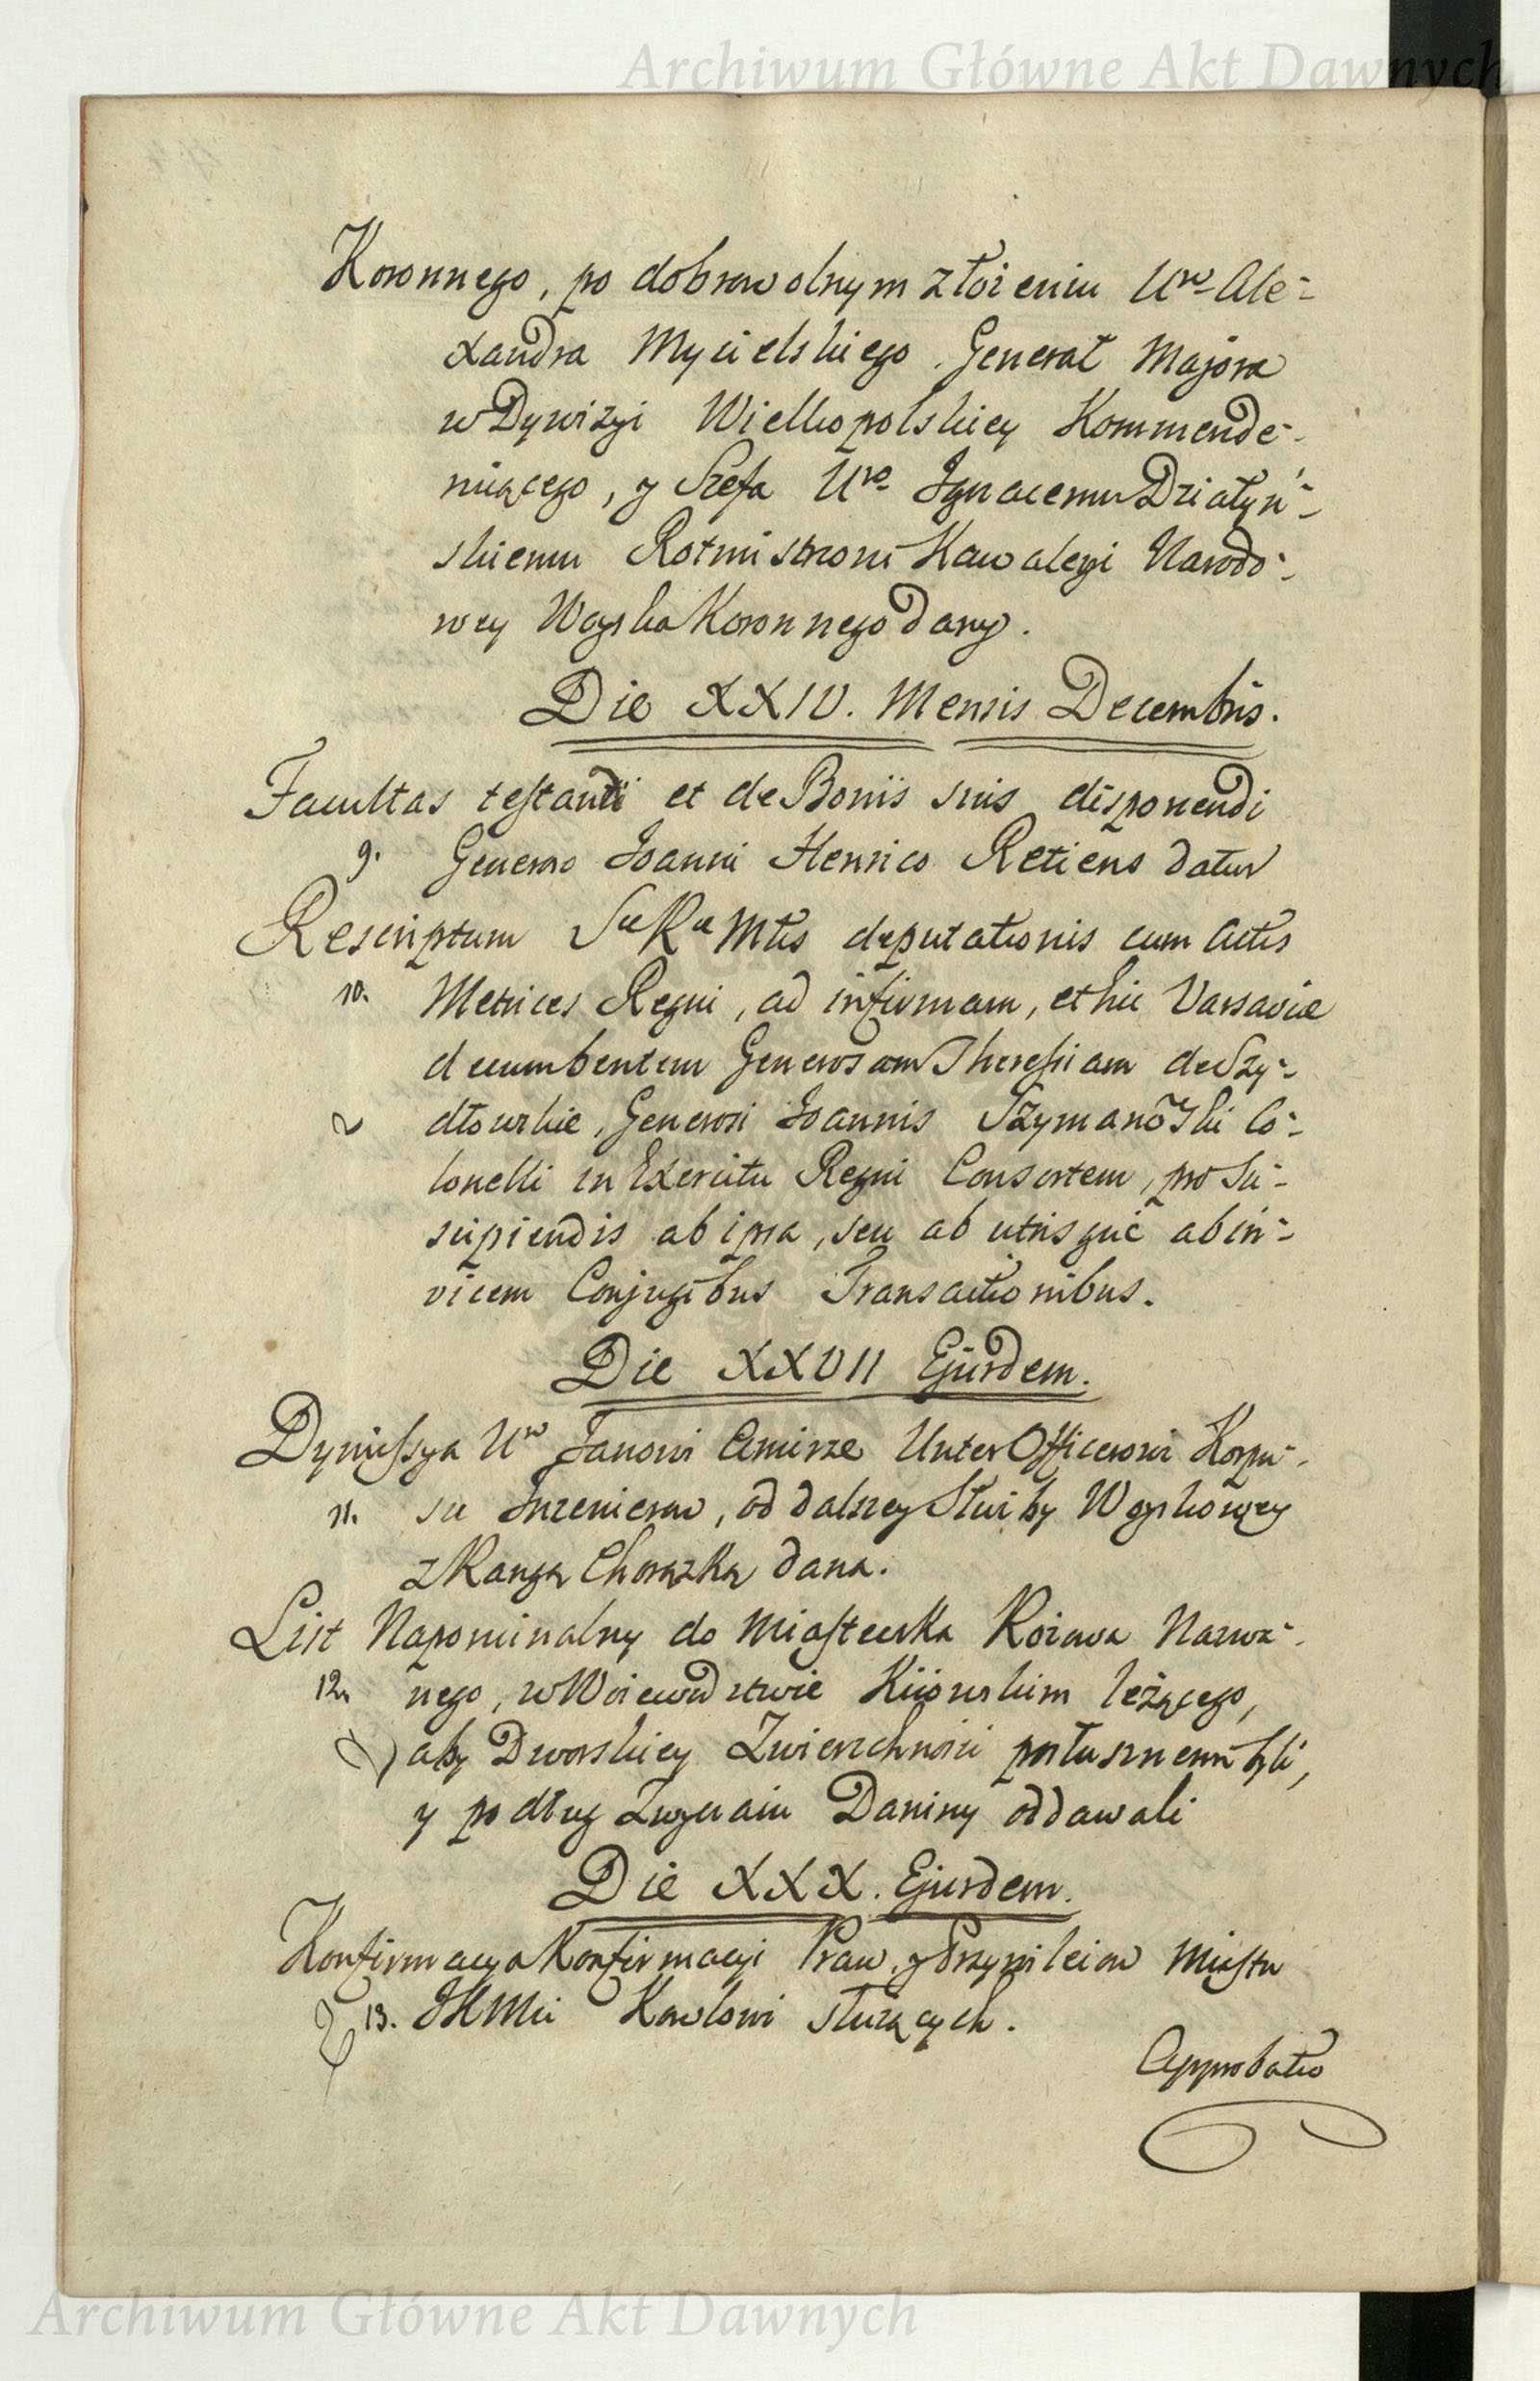 Archiwum Główne Akt Dawnych
Koronnego, po dobrowolnym złożeniu Uro Ale=
xandra Mycielskiego Generał Majora
w Dywizyi Wielkopolskiey Kommende=
niącego, y Szefa Uro Ignacemu Działyń=
skiemu Rotmistrzowi Kawaleryi Narodo=
wey Woyska Koronnego dany.
Die XXIV. Mensis Decembris.
Facultas testandi et de Bonis suis disponendi
9. Generoso Joanni Henrico Retiens datur
Rescriptum Sae Rae Mtis deputationis cum Actis
10. Metrices Regni, ad infirmam, et hic Varsaviae
decumbentem Generosam Theressiam de Szy=
dłowskie, Generosi Joannis Szymanowski Co=
lonelli in Exercitu Regni Consortem, pro su=
scipiendis ab ipsa, seu ab utrisque ab in=
vicem Conjugibus Transactionibus.
Die XXVII Ejusdem.
Dymissya Uro Janowi Amirze Unter Officerowi Korpu=
11. su Inzenierow, od dalszey Służby Woyskowey
z Rangą Chorążką dana.
List Napominalny do Miasteczka Rożowa Nazwa=
12. nego, w Woiewodztwie Kiiowskim leżącego,
aby Dworskiey Zwierzchności posłusznemi byli,
y podług Zwyczaiu Daniny oddawali
Die XXX. Ejusdem.
Konfirmacya Konfirmacyi Praw, y Przywileiow Miastu
13. JKMci Kawlowi służących.
Approbatio
Archiwum Główne Akt Dawnych